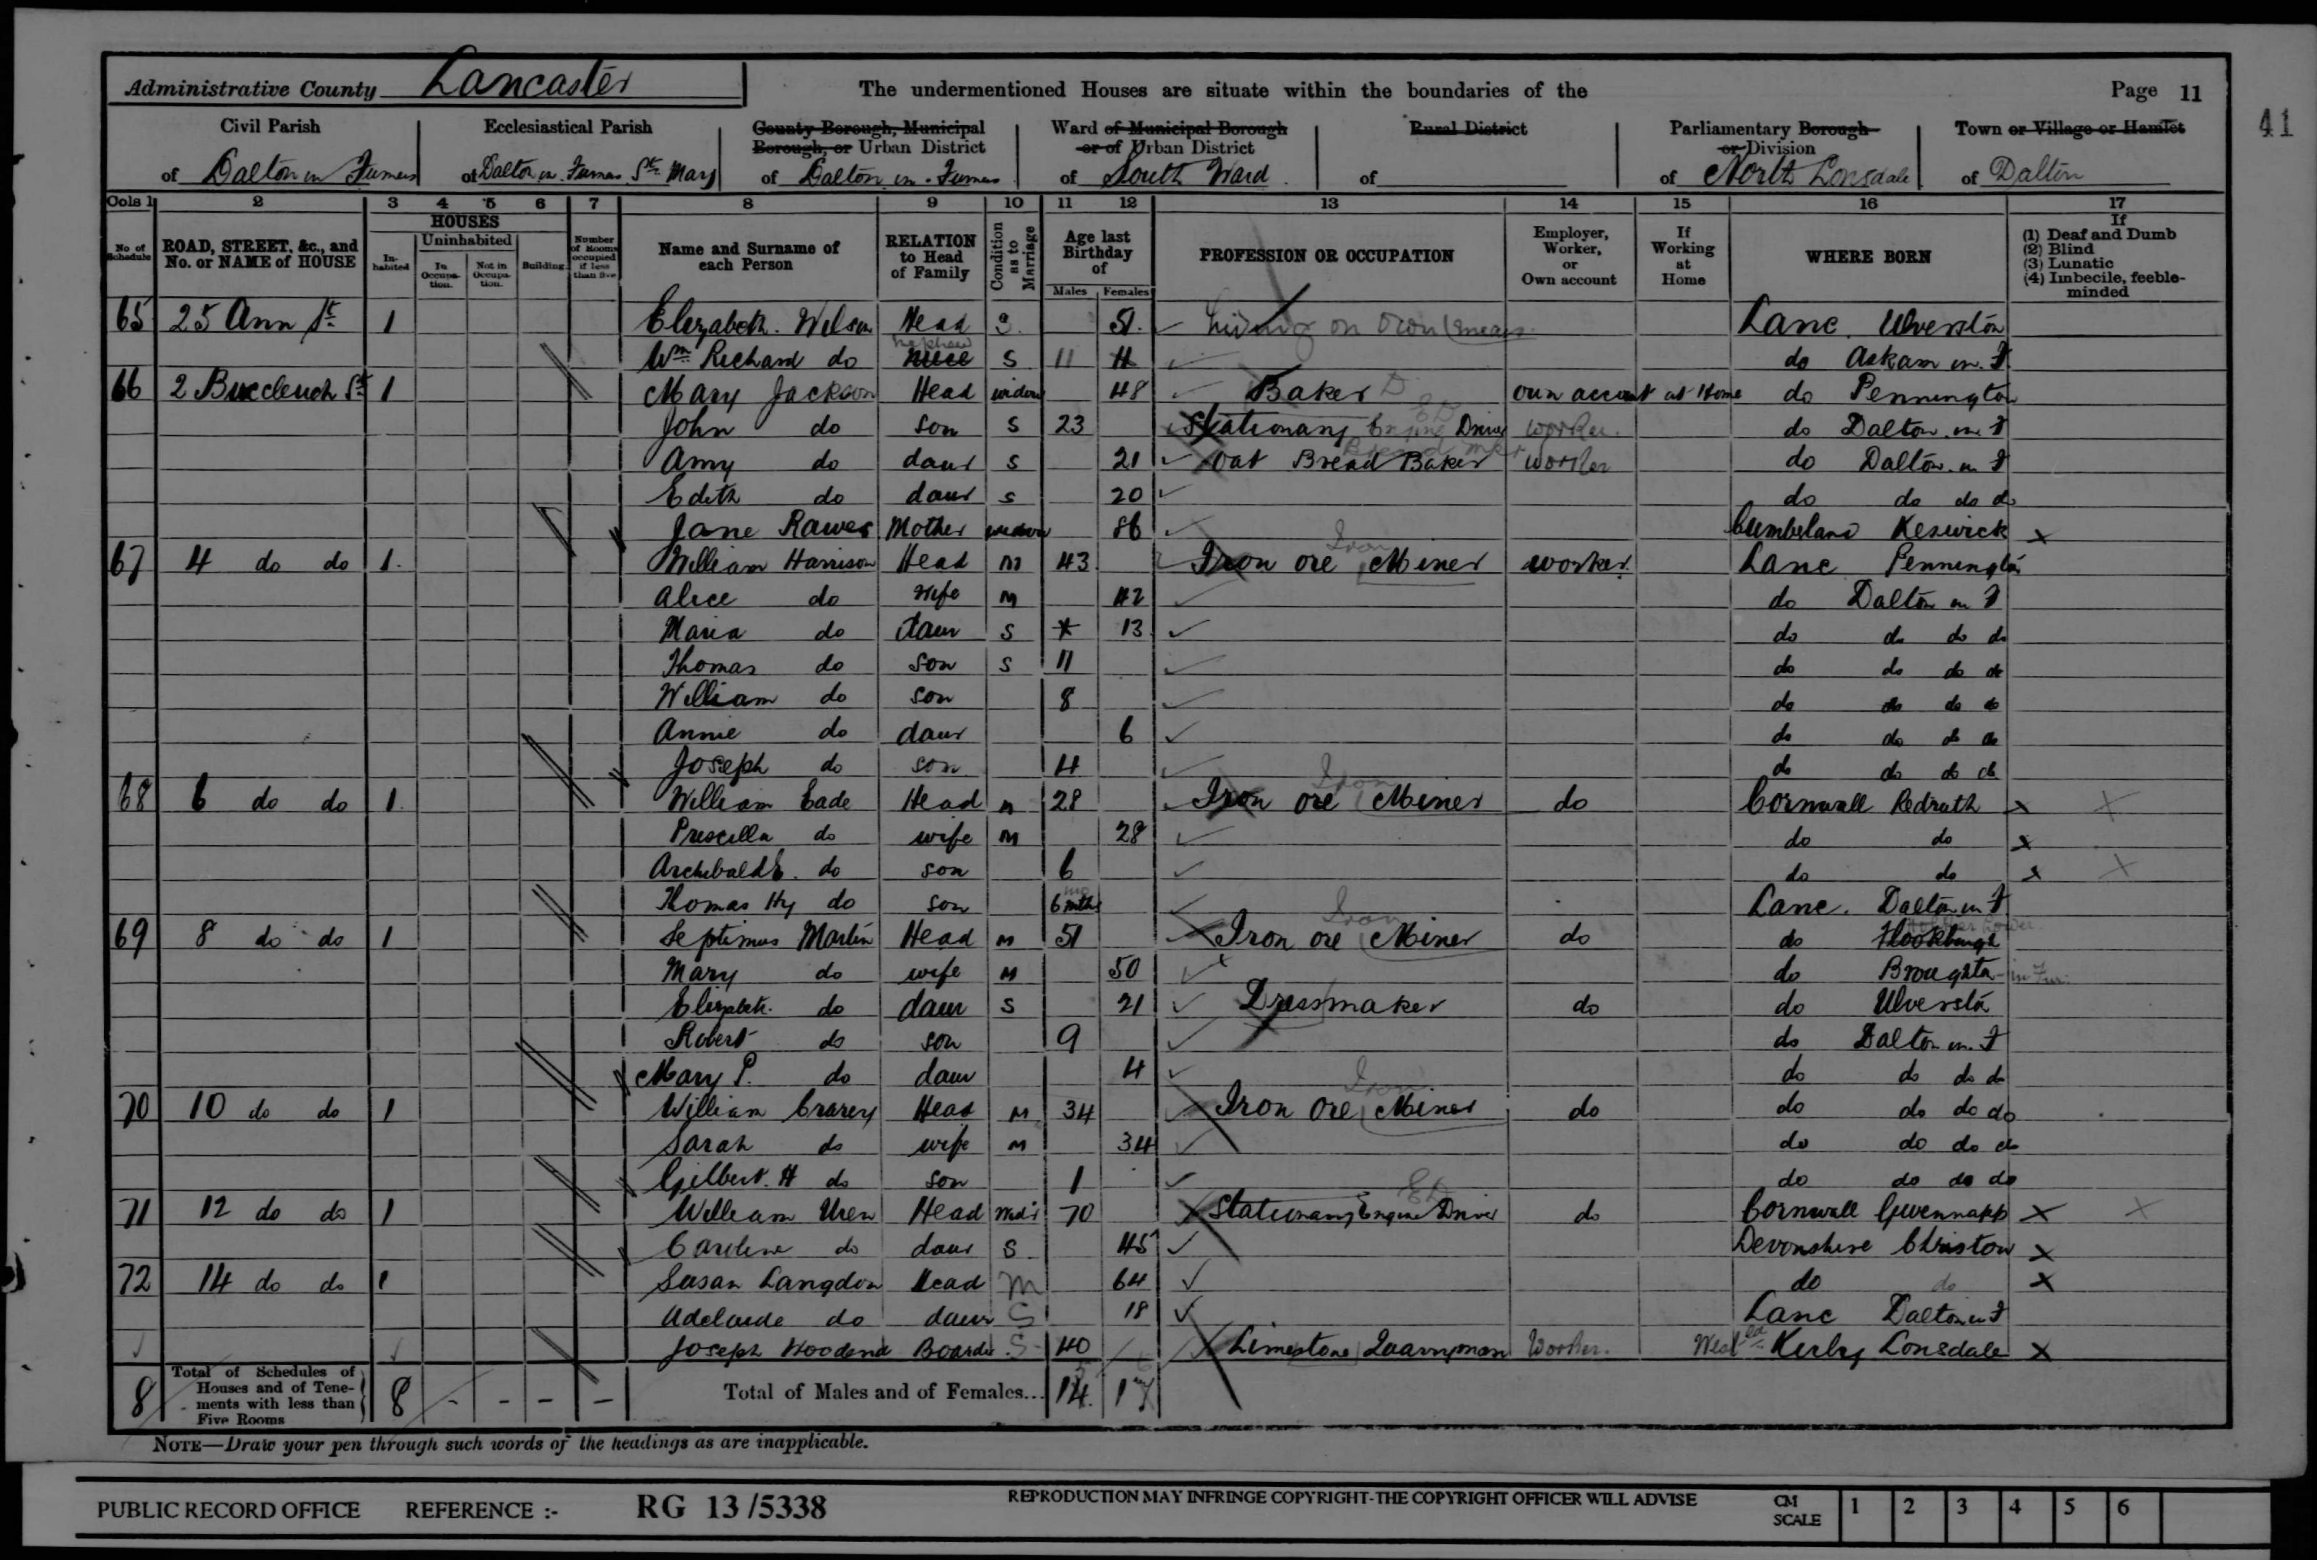 Administrative County Lancaster The undermentioned Houses are situate within the boundaries of the Page 11
41
Civil Parish Ecclesiastical Parish County Borough, Municipal Borough, or Urban District Ward of Municipal Borough or of Urban District Rural District Parliamentary Borough or Division Town or Village or Hamlet
of Dalton in Furness of Dalton in Furness St Mary of Dalton in Furness of South Ward of of North Lonsdale of Dalton
Cols 1 2 3 4 5 6 7 8 9 10 11 12 13 14 15 16 17
No of Schedule ROAD, STREET, &c., and No. or NAME of HOUSE HOUSES Inhabited Uninhabited In Occupation. Not in Occupation. Building Number of Rooms occupied if less than five Name and Surname of each Person RELATION to Head of Family Condition as to Marriage Age last Birthday of Males Females PROFESSION OR OCCUPATION Employer, Worker, or Own account If Working at Home WHERE BORN If (1) Deaf and Dumb (2) Blind (3) Lunatic (4) Imbecile, feeble-minded
65 25 Ann St 1 Elizabeth Wilson Head S 51 Living on own means Lanc Ulverston
Wm Richard do nephew niece S 11 11 do Askam in F
66 2 Buccleuch St 1 Mary Jackson Head widow 48 Baker own account at Home do Pennington
John do son S 23 Stationary Engine Driver worker do Dalton in F
Amy do daur S 21 Oat Bread Baker worker do Dalton in F
Edith do daur S 20 do do do do
Jane Rawes Mother widow 86 Cumberland Keswick
67 4 do do 1 William Harrison Head M 43 Iron ore Miner worker Lanc Pennington
Alice do wife M 42 do Dalton in F
Maria do daur S * 13 do do do do
Thomas do son S 11 do do do do
William do son 8 do do do do
Annie do daur 6 do do do do
Joseph do son 4 do do do do
68 6 do do 1 William Eade Head M 28 Iron ore Miner do Cornwall Redruth
Priscilla do wife M 28 do do
Archibald E. do son 6 do do
Thomas Hy do son 6 mths Lanc. Dalton in F
69 8 do do 1 Septimus Martin Head M 51 Iron ore Miner do do Flookburgh
Mary do wife M 50 do Broughton in Fur.
Elizabeth do daur S 21 Dressmaker do do Ulverston
Robert do son 9 do Dalton in F
Mary P. do daur 4 do do do do
70 10 do do 1 William Crarey Head M 34 Iron Ore Miner do do do do do
Sarah do wife M 34 do do do do
Gilbert H do son 1 do do do do
71 12 do do 1 William Uren Head Wid'r 70 Stationary Engine Driver do Cornwall Gwennapp
Caroline do daur S 45 Devonshire Christow
72 14 do do 1 Susan Langdon Head M 64 do do
Adelaide do daur S 18 Lanc Dalton in F
Joseph Woodend Boarder S 40 Limestone Quarryman Worker. Westld Kerby Lonsdale
8 Total of Schedules of Houses and of Tenements with less than Five Rooms 8 - - - - Total of Males and of Females... 14 17
NOTE—Draw your pen through such words of the headings as are inapplicable.
PUBLIC RECORD OFFICE REFERENCE :- RG 13/5338 REPRODUCTION MAY INFRINGE COPYRIGHT-THE COPYRIGHT OFFICER WILL ADVISE CM SCALE 1 2 3 4 5 6